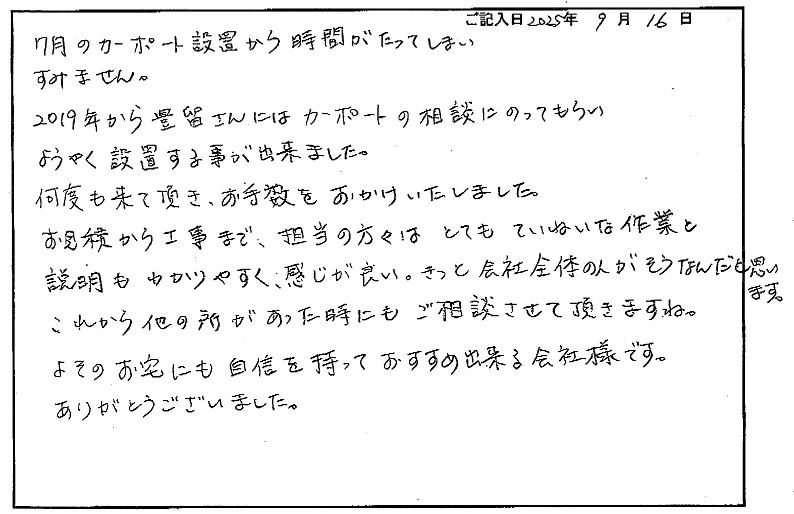 ご記入日 2025年 9月 16日
7月のカーポート設置から時間がたってしまい
すみません。
2019年から豊留さんにはカーポートの相談にのってもらい
ようやく設置する事が出来ました。
何度も来て頂き、お手数をおかけいたしました。
お見積から工事まで、担当の方々はとてもていねいな作業と
説明もわかりやすく、感じが良い。きっと会社全体の人がそうなんだと思い
ます。
これから他の所があった時にもご相談させて頂きますね。
よそのお宅にも自信を持っておすすめ出来る会社様です。
ありがとうございました。